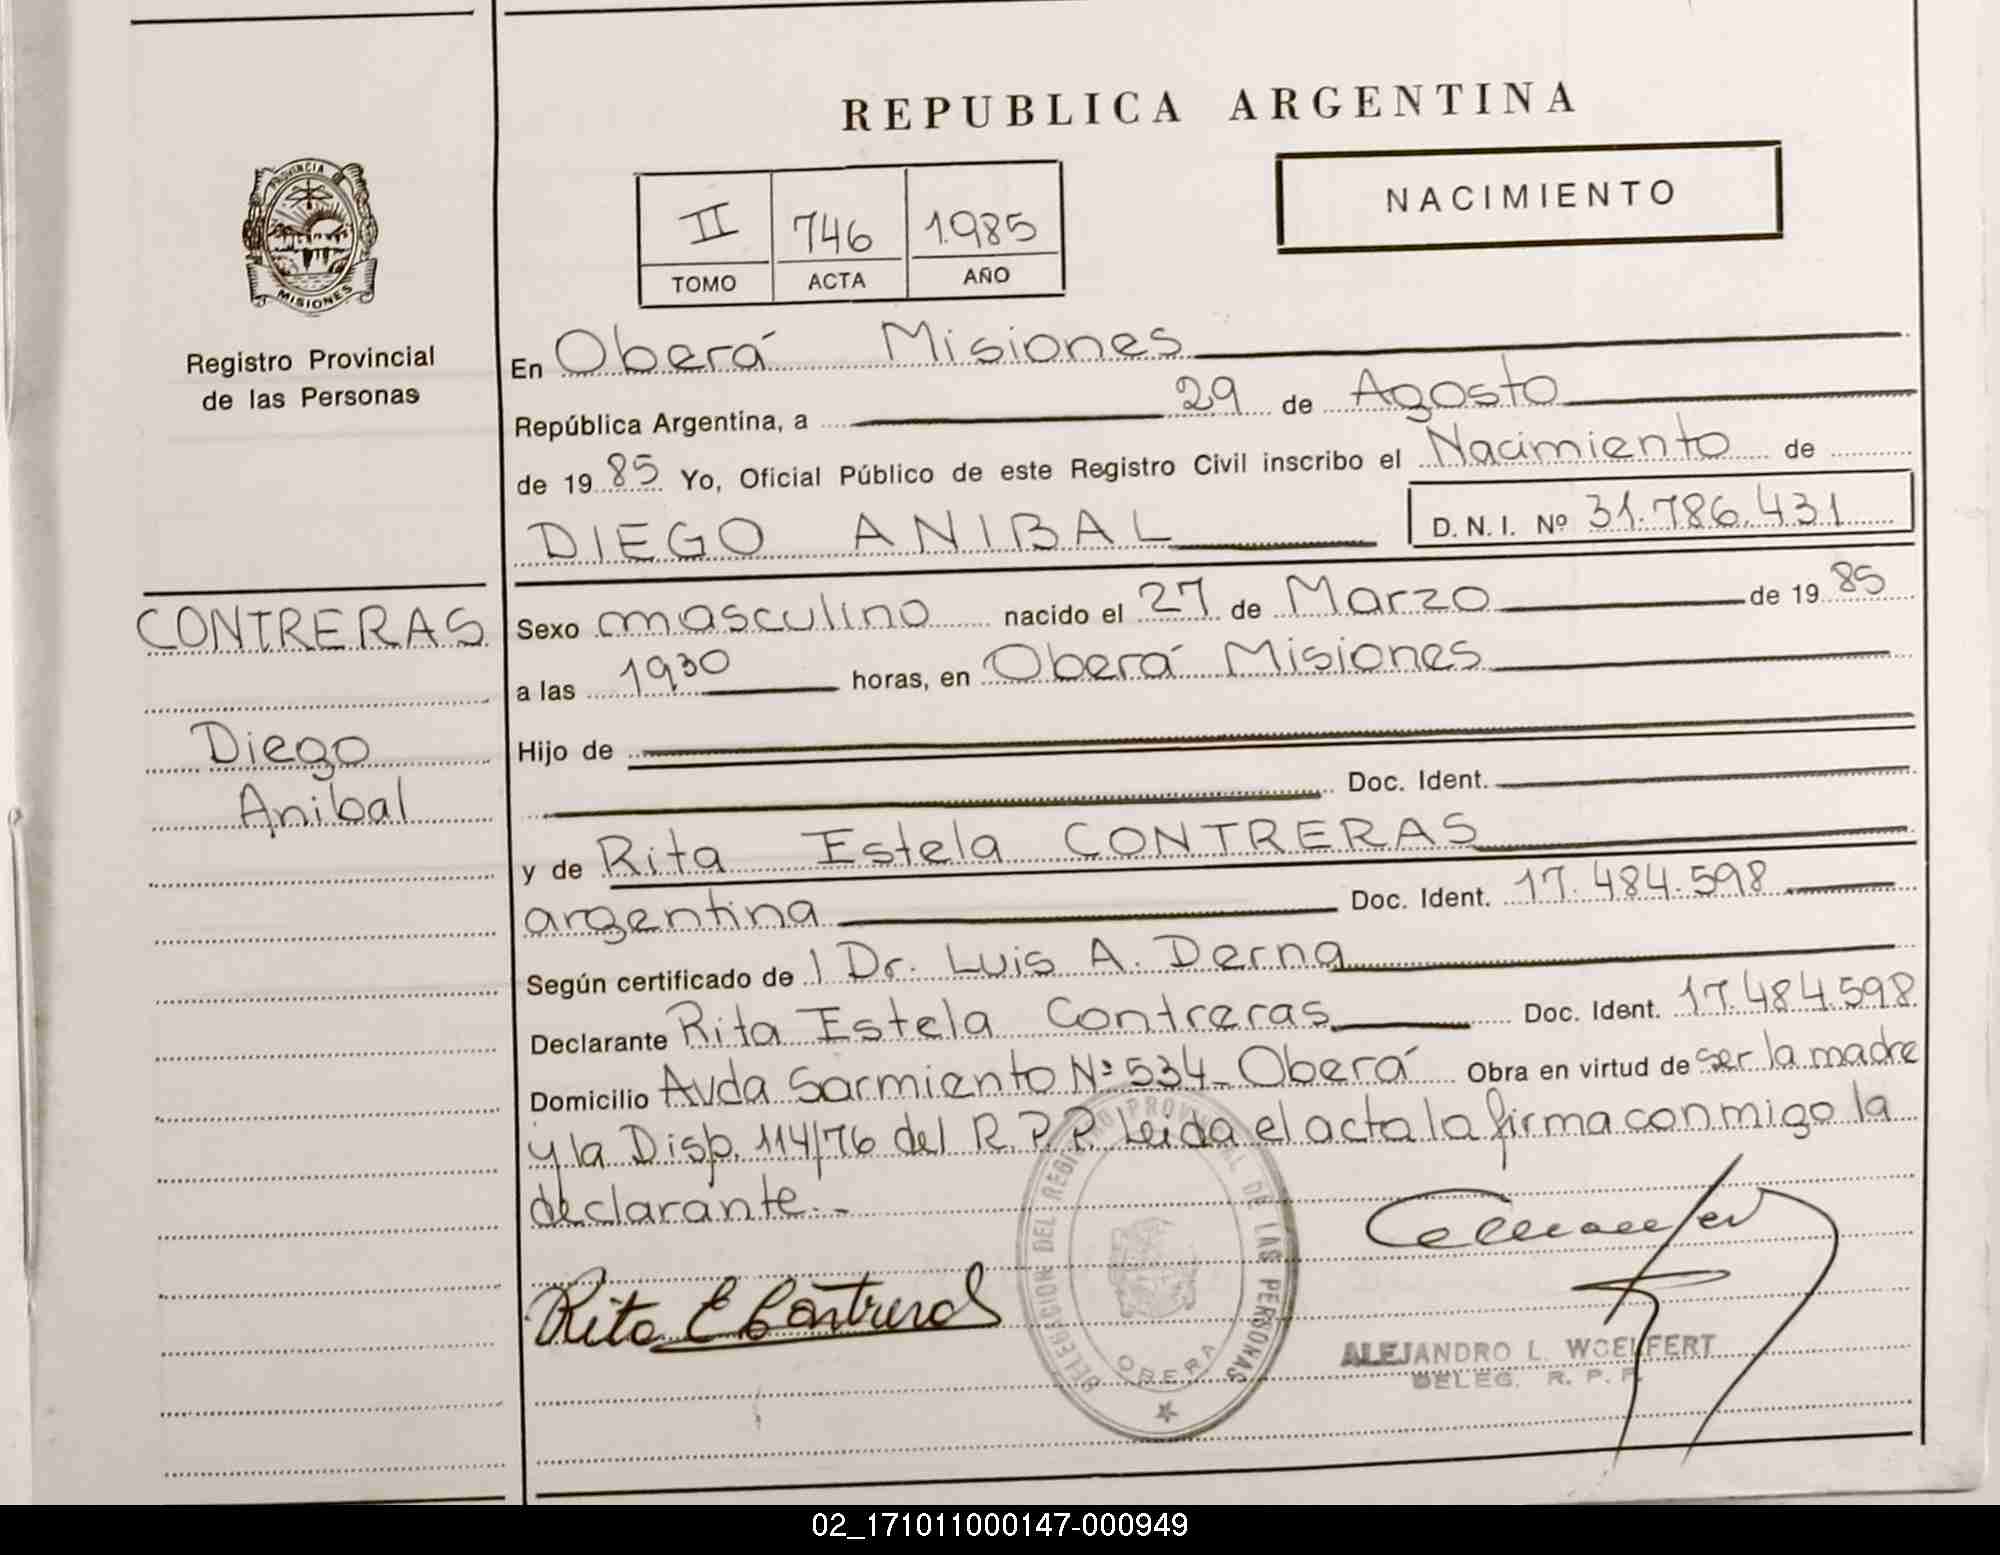 REPUBLICA ARGENTINA
NACIMIENTO
II 746 1985
TOMO ACTA AÑO
PROVINCIA DE
MISIONES
Registro Provincial
de las Personas
En Oberá Misiones
República Argentina, a 29 de Agosto
de 19 85 Yo, Oficial Público de este Registro Civil inscribo el Nacimiento de
DIEGO ANIBAL D. N. I. Nº 31.786.431
CONTRERAS
Diego
Anibal
Sexo masculino nacido el 27 de Marzo de 19 85
a las 1930 horas, en Oberá Misiones
Hijo de
Doc. Ident.
y de Rita Estela CONTRERAS
argentina Doc. Ident. 17.484.598
Según certificado de l Dr. Luis A. Derna
Declarante Rita Estela Contreras Doc. Ident. 17.484.598
Domicilio Avda Sarmiento Nº 534 - Oberá Obra en virtud de ser la madre
y la Disp. 114/76 del R.P.P. Leida el acta la firma conmigo la
declarante.-
DELEGACION DEL REGISTRO PROVINCIAL DE LAS PERSONAS
OBERA
Rita E Contreras
ALEJANDRO L. WOELFERT
DELEG. R. P. P.
02_171011000147-000949